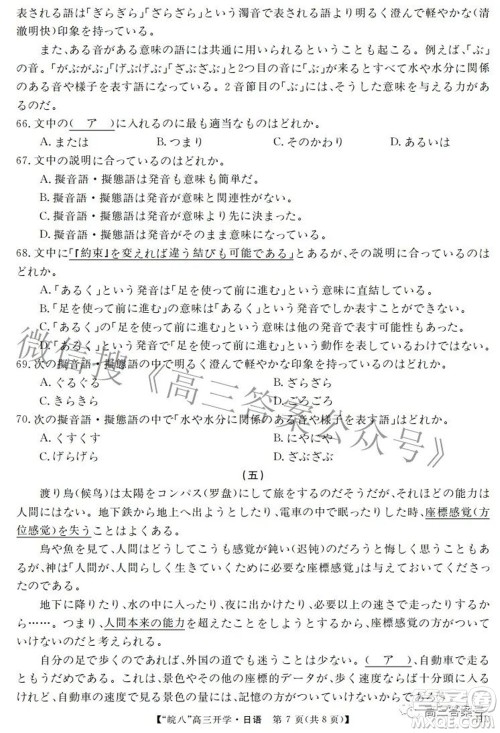 表される語は「ぎらぎら」「ざらざら」という濁音で表される語より明るく澄んで軽やかな(清
澈明快)印象を持っている。
また、ある音がある意味の語には用いられるということも起こる。例えば、「ぶ」
の音。「がぶがぶ」「げぶげぶ」「ざぶざぶ」と2つ目の音に「ぶ」がくると、すべて水や水分に関係
のある音や様子を表す語になっている。2音節目の「ぶ」には、そうした意味を与える力があ
るのだ。
66.文中の(ア)に入れるのに最も適当なものはどれか。
A.または B.つまり C.そのかわり D.あるいは
67.文中の説明に合っているのはどれか。
A.擬音語・擬態語は発音も意味も簡単だ。
B.擬音語・擬態語は発音が意味と関連性がない。
C.擬音語・擬態語は発音が意味より先に決まった。
D.擬音語・擬態語は発音がそのまま意味になっている。
68.文中に「『約束』を変えれば違う結びも可能である」とあるが、その説明に合っているのは
どれか。
A.「あるく」という発音は「足を使って前に進む」の意味に直結する。
B.「足を使って前に進む」の意味は「あるく」という発音でしか表すことができない。
C.「あるく」という発音が表している意味は他の発音で表す可能性もあった。
D.「足を使って前に進む」は「あるく」という動作を表しているわけではない。
69.次の擬音語・擬態語の中で明るく澄んで軽やかな印象を持っているのはどれか。
A.ぐるぐる B.ざらざら
C.きらきら D.ぎらぎら
70.次の擬音語・擬態語の中で「水や水分に関係のある音や様子を表す語」はどれか。
A.くすくす B.にやにや
C.げらげら D.ざぶざぶ
(五)
渡り鳥(候鸟)は太陽をコンパス(罗盘)にして旅をするのだそうだが、それほどの能力は
人間にはない。地下鉄から地上へ出たとたんに、電車の中で眠りから覚めた時、座標感覚(方
位感觉)を失うことはよくある。
鳥や魚を見て、人間はどうしてこうも感覚が鈍い(迟钝)のだろうと悔しく思うこともある
が、神は「人間が、人間にとって自然な生活をしているかぎり」、必要な感覚はすべて与えておい
てくださったのだ。
地下に降りたり、水の中に入ったり、夜に出かけたり、歩く以上の速さで走ったりするか
ら……。つまり、人間本来の能力を超えたことをしようとするから、座標感覚の方がついて
いけないのだと考えられる。
自分の足で歩くのであれば、外国の道でも迷うことは少ない。(ア)、自動車で走る
ともうだめだ。これは、景色やその他の座標的データが、自動車の速さで目の前に現れるの
に、景色の移り変わりに感覚の方がついていけないからだろう。
【“皖八”高三开学·日语 第7页(共8页)】
微信搜《高三答案公众号》
高三答案